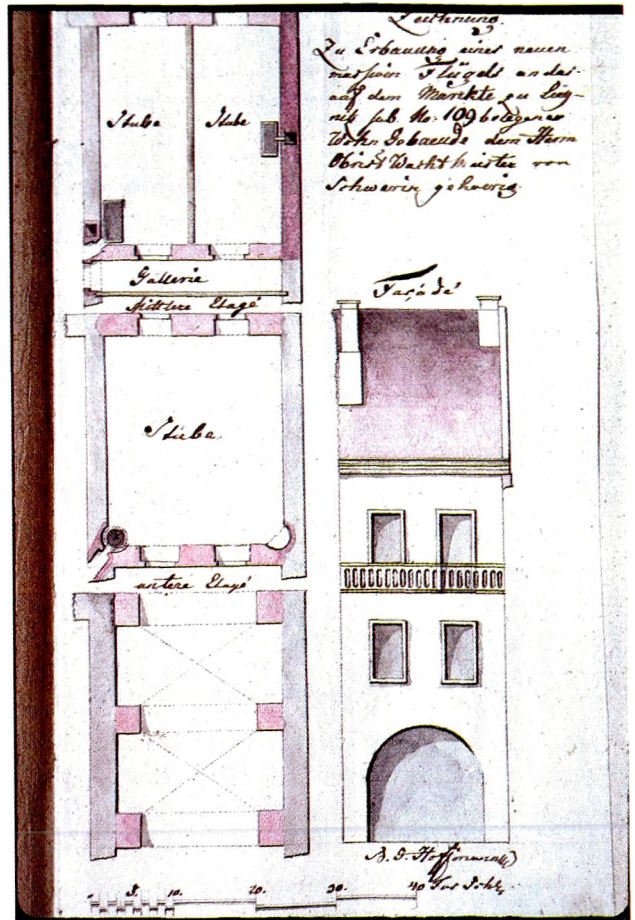 Zeichnung.
Zu Erbauung eines neuen
massiven Flügels an das
auf dem Marckte zu Lieg-
nitz sub. No: 109 belegenen
Wohn Gebaeude dem Herrn
Obrist Wacht Meister von
Schwerin gehoerig.
Stube
Stube
Gallerie
Mittlere Etagé
Façade
Stube.
untere Etagé
B. G. Hoffmann
5. 10. 20. 30. 40 Fus Schl: